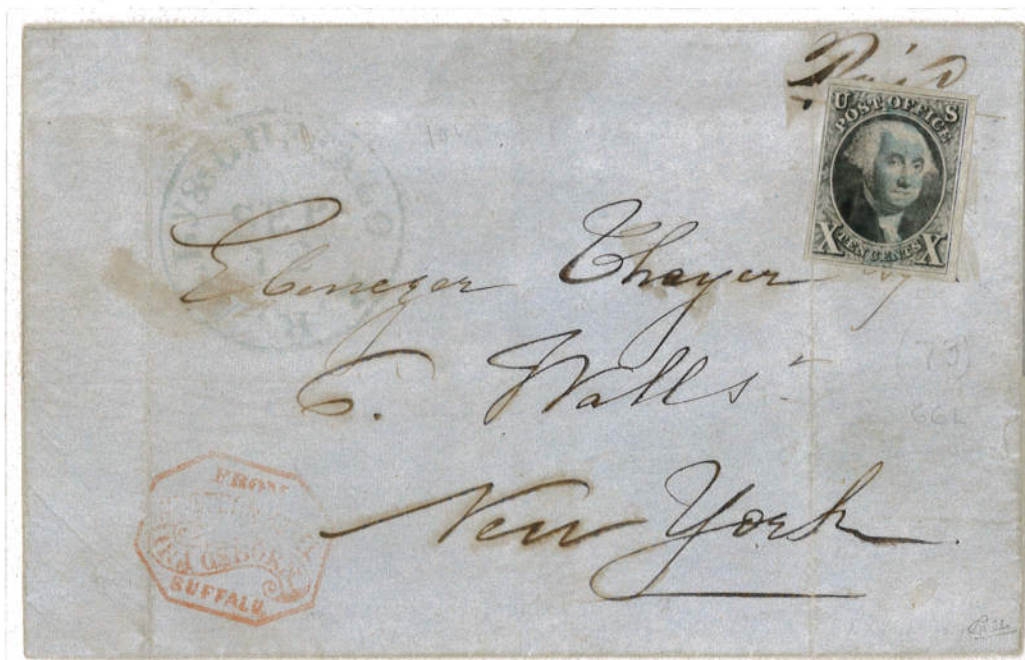 Paid
U S
POST OFFICE
X TEN CENTS X
Ebenezer Thayer
6. Wall S^t
New York
FROM
OSBORN
BUFFALO
(73)
66L